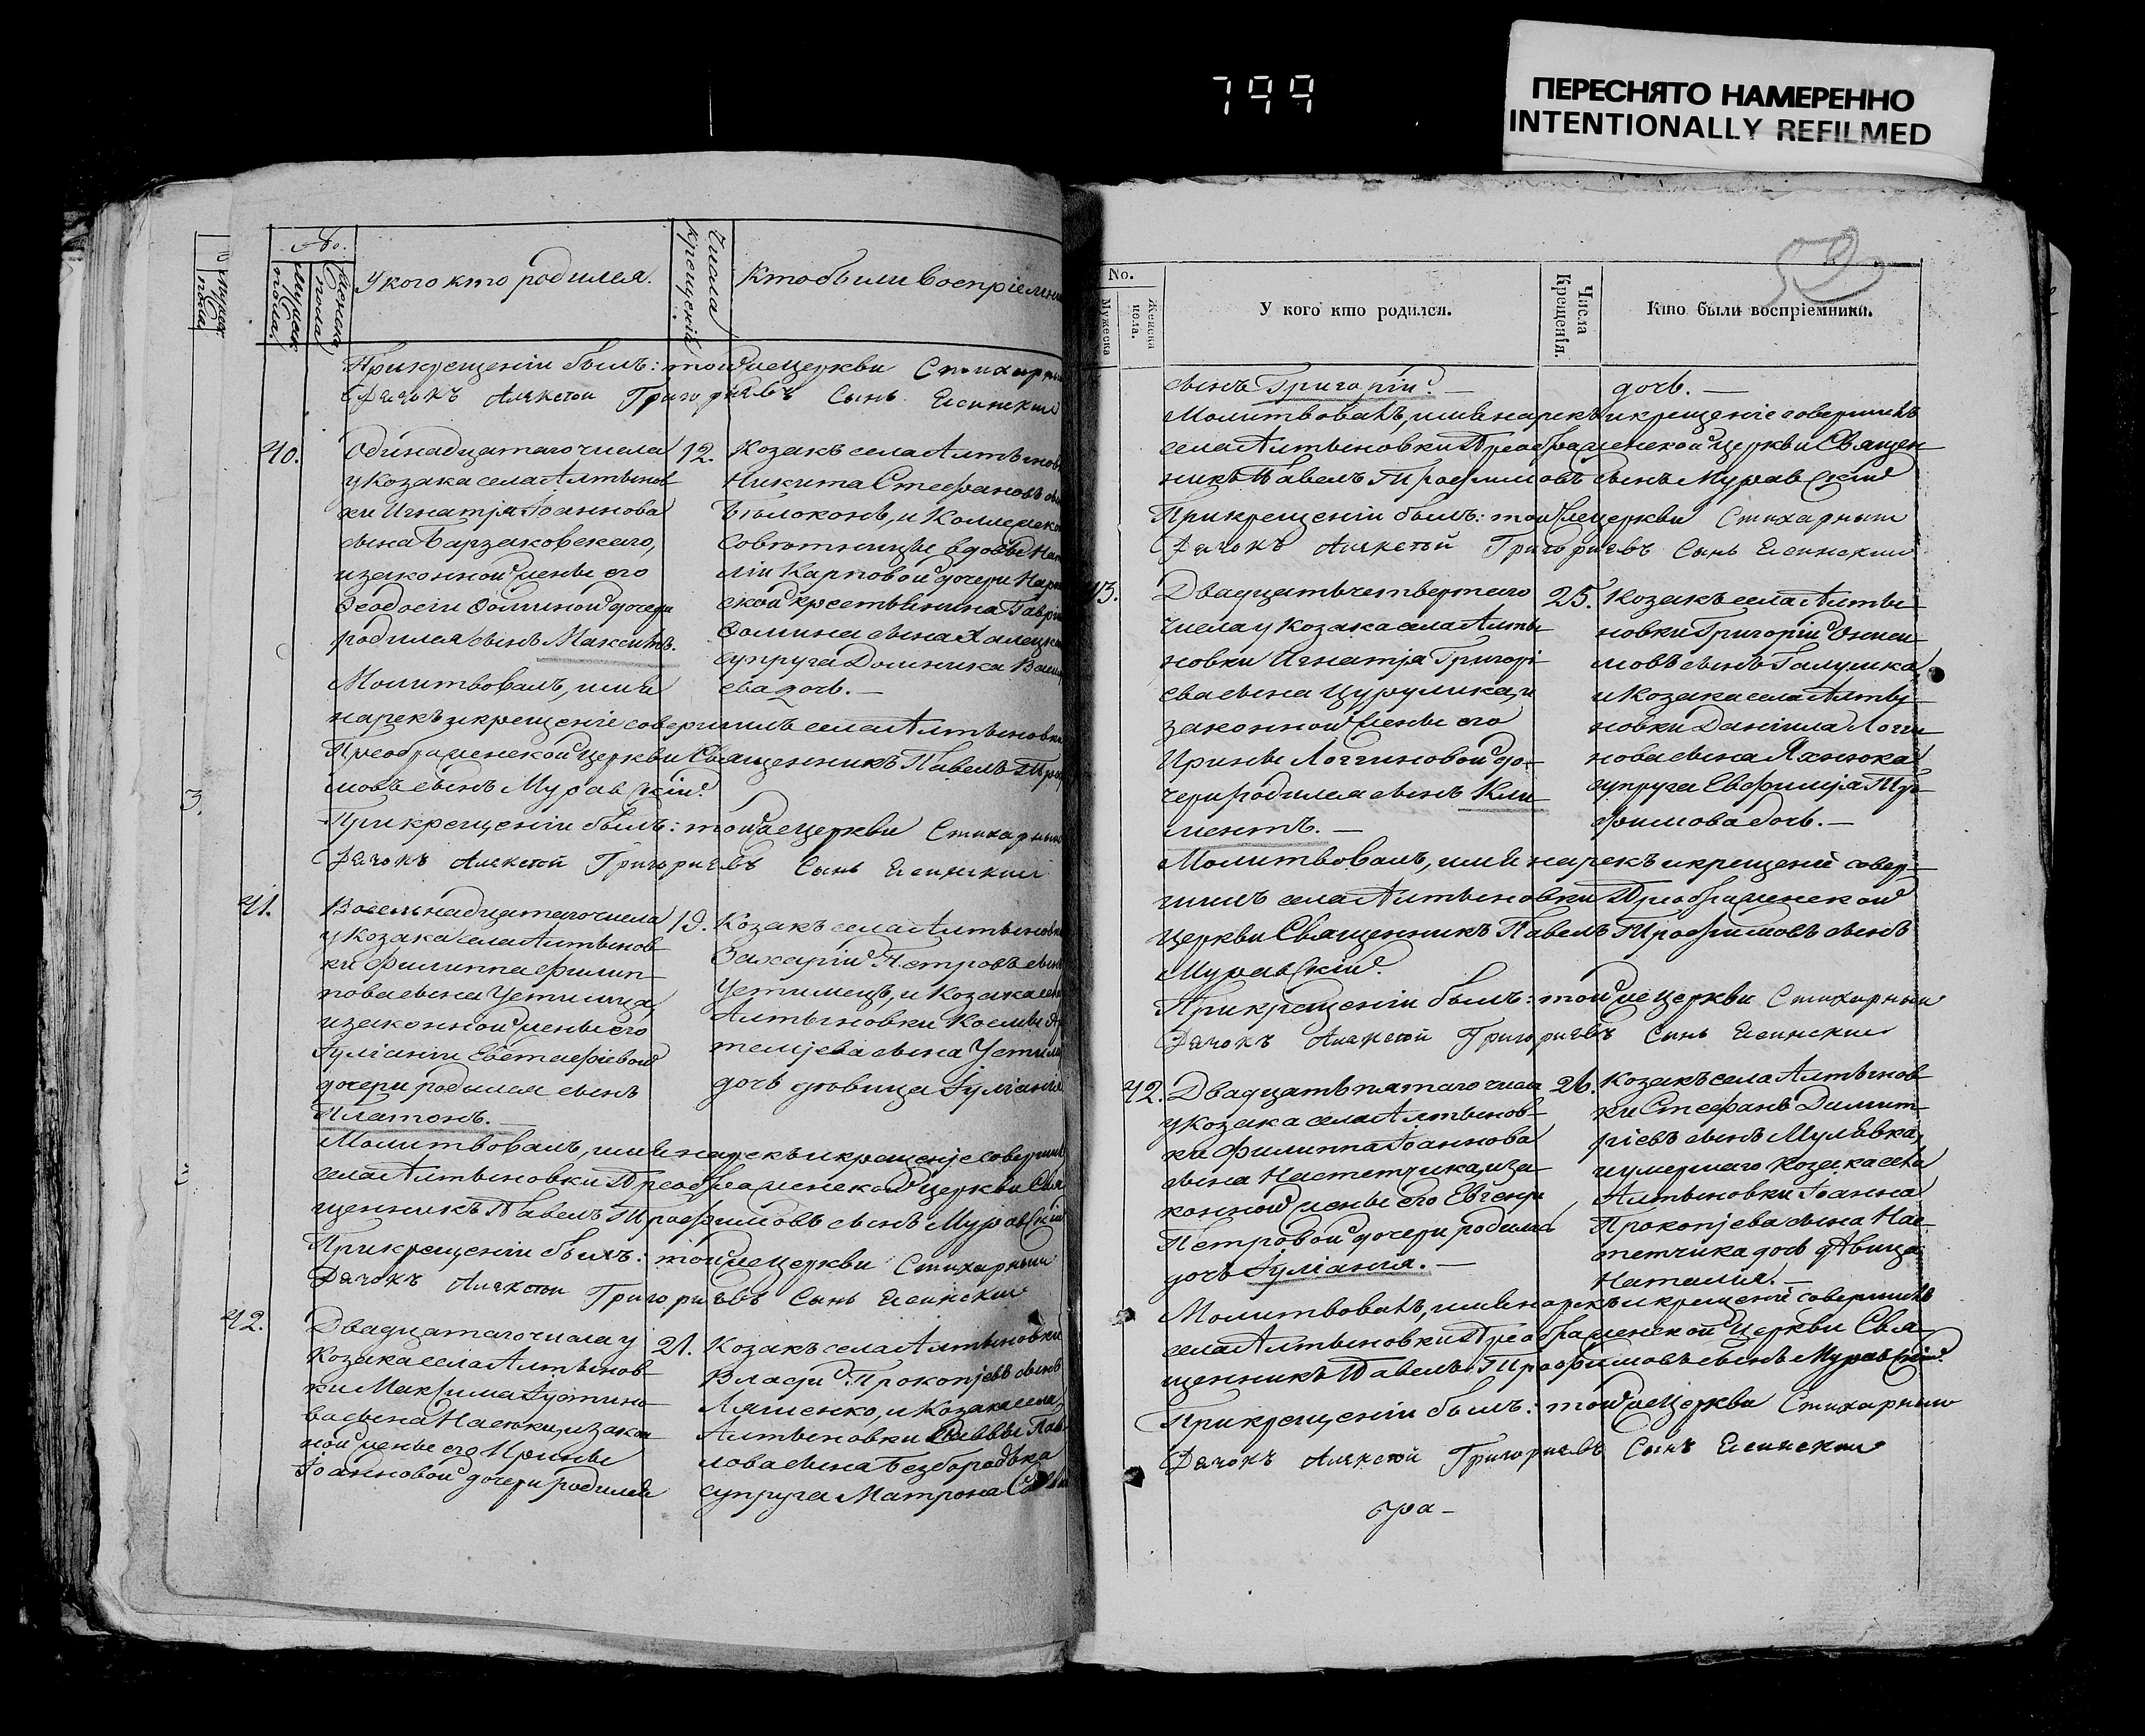 799
ПЕРЕСНЯТО НАМЕРЕННО
INTENTIONALLY REFILMED
№.
Мужеск пола.
Женска пола
У кого кто родился.
Числа крещенія
Кто были воспріемни
При крещеніи былъ: той же церкви Стихарны
Дячокъ Алексѣй Григорiевъ Сынъ Есинскiй
40.
Одинадцатаго числа
у Козака села Алтынов
ки Игнатія Іоаннова
сына Барзаковскаго,
и законной жены его
Ѳеодосіи Ѳоминой дочери
родился сынъ Максимъ.
12.
Козакъ села Алтынов
Никита Стефановъ
Толоконь, и Коллежск
Совѣтницы вдовы Ната
ліи Карповой дочери
ской крестьянина Гаври
Ѳомина сына Халецк
супруга Домникa
ева дочь.
Молитвовалъ, имя
нарекъ и крещеніе совершилъ села Алтыновки
Преображенской Церкви Священникъ Павелъ Троф
мовъ сынъ Муравскій.
При крещеніи былъ: той же церкви Стихарный
Дячокъ Алексѣй Григорiевъ Сынъ Есинскiй
41.
Восемьнадцатаго числа
у Козака села Алтынов
ки Филиппа Филип
пова сына Устимца,
и законной жены его
Іуліаніи Евстафіевой
дочери родился сынъ
Платонъ.
19.
Козакъ села Алтыновки
Захарій Петровъ сынъ
Устимецъ, и Козака села
Алтыновки Космы
сына Устим
дочь дѣвица Іуліанія
Молитвовалъ, имя нарекъ и крещеніе соверши
села Алтыновки Преображенской Церкви Свя
щенникъ Павелъ Трофимовъ сынъ Муравскій
При крещеніи былъ: той же церкви Стихарный
Дячокъ Алексѣй Григорiевъ Сынъ Есинскiй
42.
Двадцатаго числа у
Козака села Алтынов
ки Максима Іустино
ва сына Насюки, и закон
ной жены его Ирины
Іоанновой дочери родился
21.
Козакъ села Алтыновки
Власій Прокопіевъ сынъ
Ляшенко, и Козака села
Алтыновки Саввы Пав
лова сына Безбородька
супруга Матрона
52
No.
Мужеска
Женска
пола.
У кого кто родился.
Числа Крещенія.
Кто были воспріемники.
сынъ Григорій.
дочь.
Молитвовалъ, имя нарекъ и крещеніе совершилъ
села Алтыновки Преображенской Церкви Священ
никъ Павелъ Трофимовъ сынъ Муравскій
При крещеніи былъ: той же церкви Стихарный
Дячокъ Алексѣй Григорiевъ Сынъ Есинскiй
43.
Двадцать четвертаго
числа у Козака села Алты
новки Игнатія Григорі
ева сына Цурулика, и
законной жены его
Ирины Логгиновой до-
чери родился сынъ Кли
ментъ.
25.
Козакъ села Алты
новки Григорій Онисі
мовъ сынъ Галушка,
и Козака села Алты
новки Даніила Логги
нова сына Яхнюка
супруга Евфимія Тро
фимова дочь.
Молитвовалъ, имя нарекъ и крещеніе совер-
шилъ села Алтыновки Преображенской
Церкви Священникъ Павелъ Трофимовъ сынъ
Муравскій.
При крещеніи былъ: той же церкви Стихарный
Дячокъ Алексѣй Григорiевъ Сынъ Есинскiй
42.
Двадцать пятаго числа
у Козака села Алтынов-
ки Филиппа Іоаннова
сына Настетчика, и за
конной жены его Евгеніи
Петровой дочери родилась
дочь Іуліанія.
26.
Козакъ села Алтынов
ки Стефанъ Димит-
ріевъ сынъ Мулявка,
и умершаго Козака села
Алтыновки Іоанна
Прокопіева сына Нас-
тетчика дочь дѣвица
Наталія.
Молитвовалъ, имя нарекъ и крещеніе совершилъ
села Алтыновки Преображенской Церкви Свя
щенникъ Павелъ Трофимовъ сынъ Муравскій.
При крещеніи былъ: той же церкви Стихарный
Дячокъ Алексѣй Григорiевъ Сынъ Есинскiй